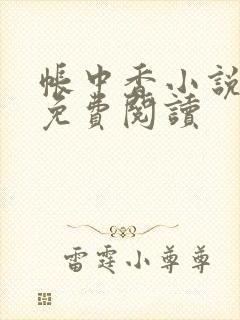 帳中香小說
免費閱讀
雷霆小尊尊